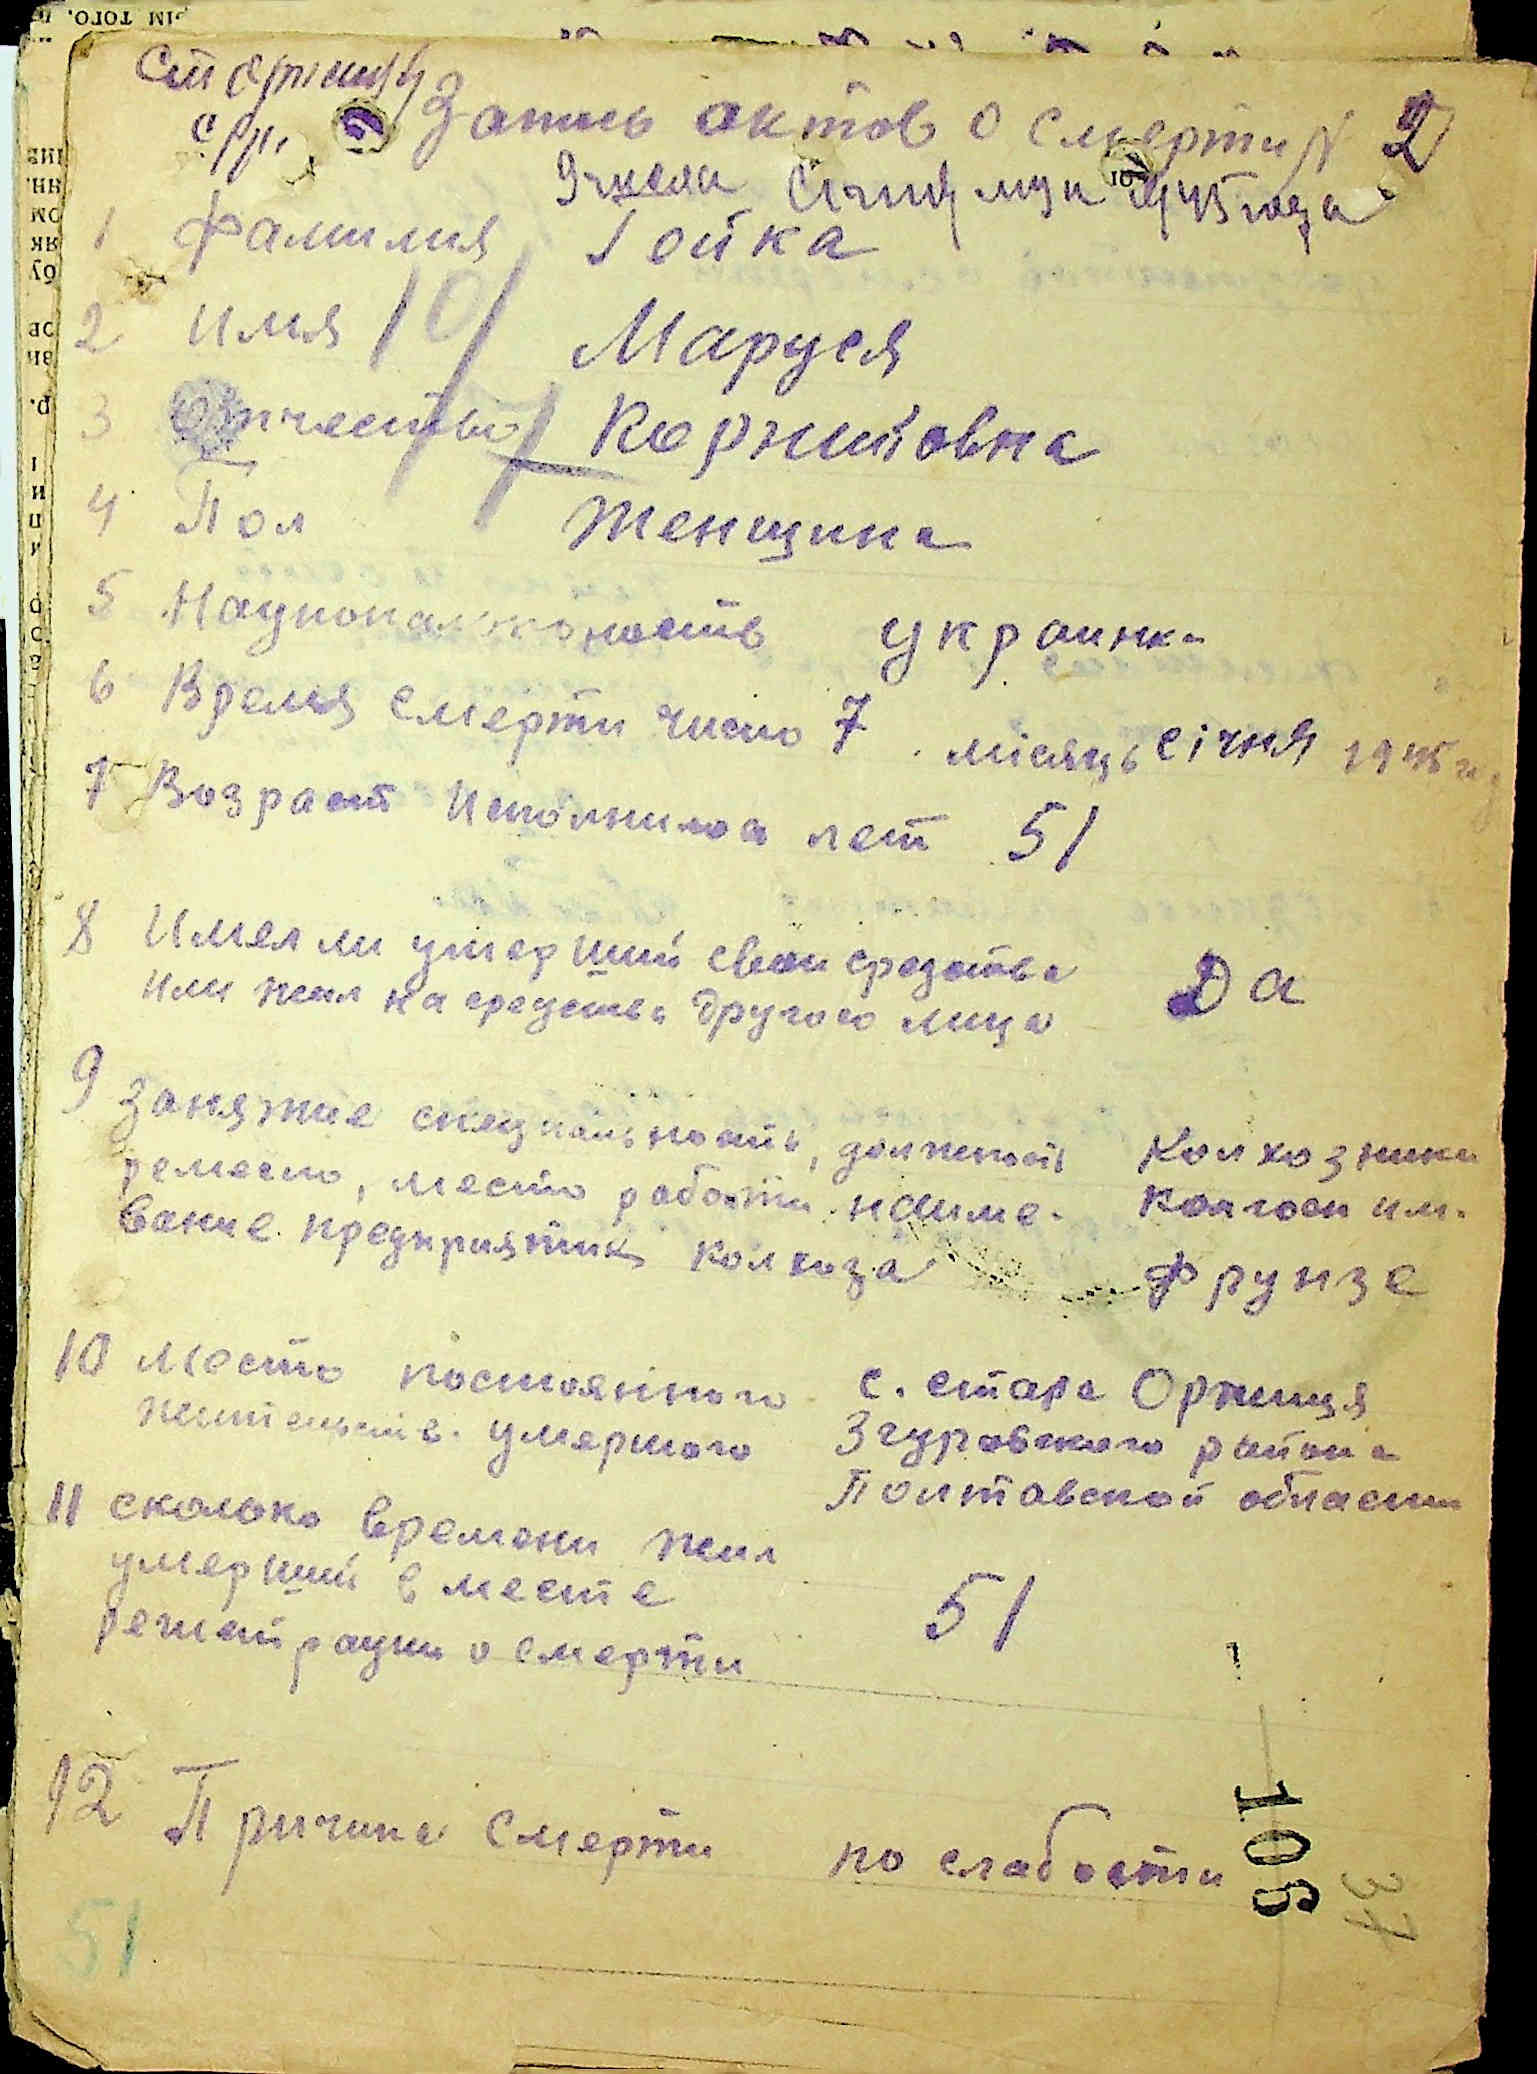 Запись актов о смерти N 2
9 числа Січня м-ця 1945 года
1 Фамилия Гойка
2 Имя Маруся
3 Отчество Корнитовна
4 Пол женщина
5 Национальность украинка
6 Время смерти число 7 місяць січня 1945 г
7 Возраст исполнилоа лет 51
8 Имел ли умерший свои средства
или жил на средства другого лица Да
9 Занятие специальность, должность колхозника
ремесло, место работы наиме- колгосп им.
вание предприятия колхоза Фрунзе
10 Место постоянного с. стара Оржиця
жительств. умершого Згуровского района
Полтавской области
11 сколько времени жил
умерший в месте 51
регистрации о смерти
12 Причина смерти по слабости
106
37
51